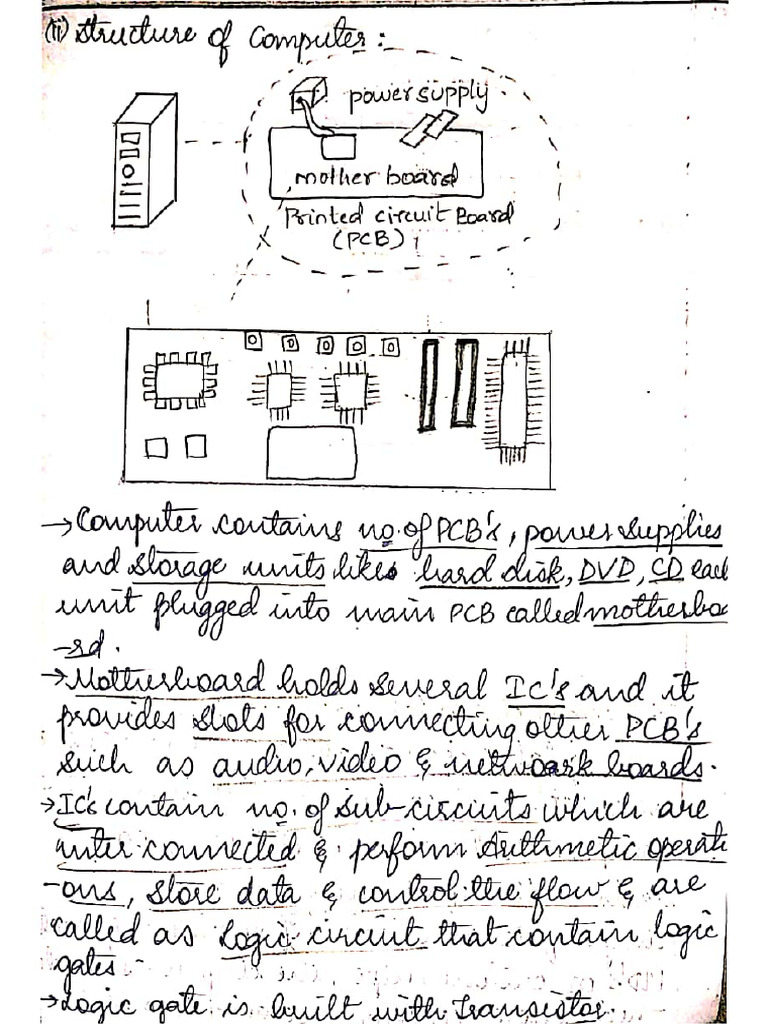 (ii) Structure of Computer:
power supply
mother board
Printed circuit Board
(PCB)
→ Computer contains no. of PCB's, power supplies
and storage units likes hard disk, DVD, CD each
unit plugged into main PCB called motherboa
-rd.
→ Motherboard holds several IC's and it
provides slots for connecting other PCB's
such as audio, video & netwoark boards.
→ IC's contain no. of sub-circuits which are
inter connected & perform Arithmetic operati
-ons, store data & control the flow & are
called as Logic circuit that contain logic
gates.
→ Logic gate is built with Transistor.